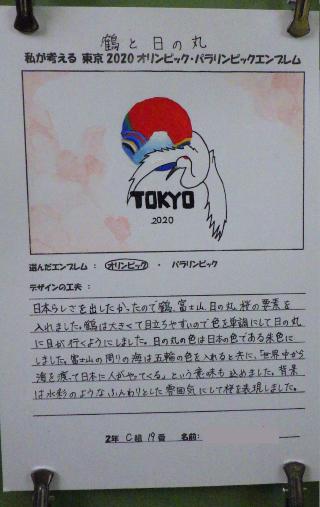 鶴と日の丸
私が考える 東京2020オリンピック・パラリンピックエンブレム
TOKYO
2020
選んだエンブレム : オリンピック ・ パラリンピック
デザインの工夫 :
日本らしさを出したかったので鶴、富士山、日の丸、桜の要素を
入れました。鶴は大きくて目立ちやすいので色を単調にして日の丸
に目が行くようにしました。日の丸の色は日本の色である朱色に
しました。富士山の周りの海は五輪の色を入れると共に、「世界中から
海を渡って日本に人がやってくる」という意味も込めました。背景
は水彩のようなふんわりとした雰囲気にして桜を表現しました。
2年 C組 19番 名前: